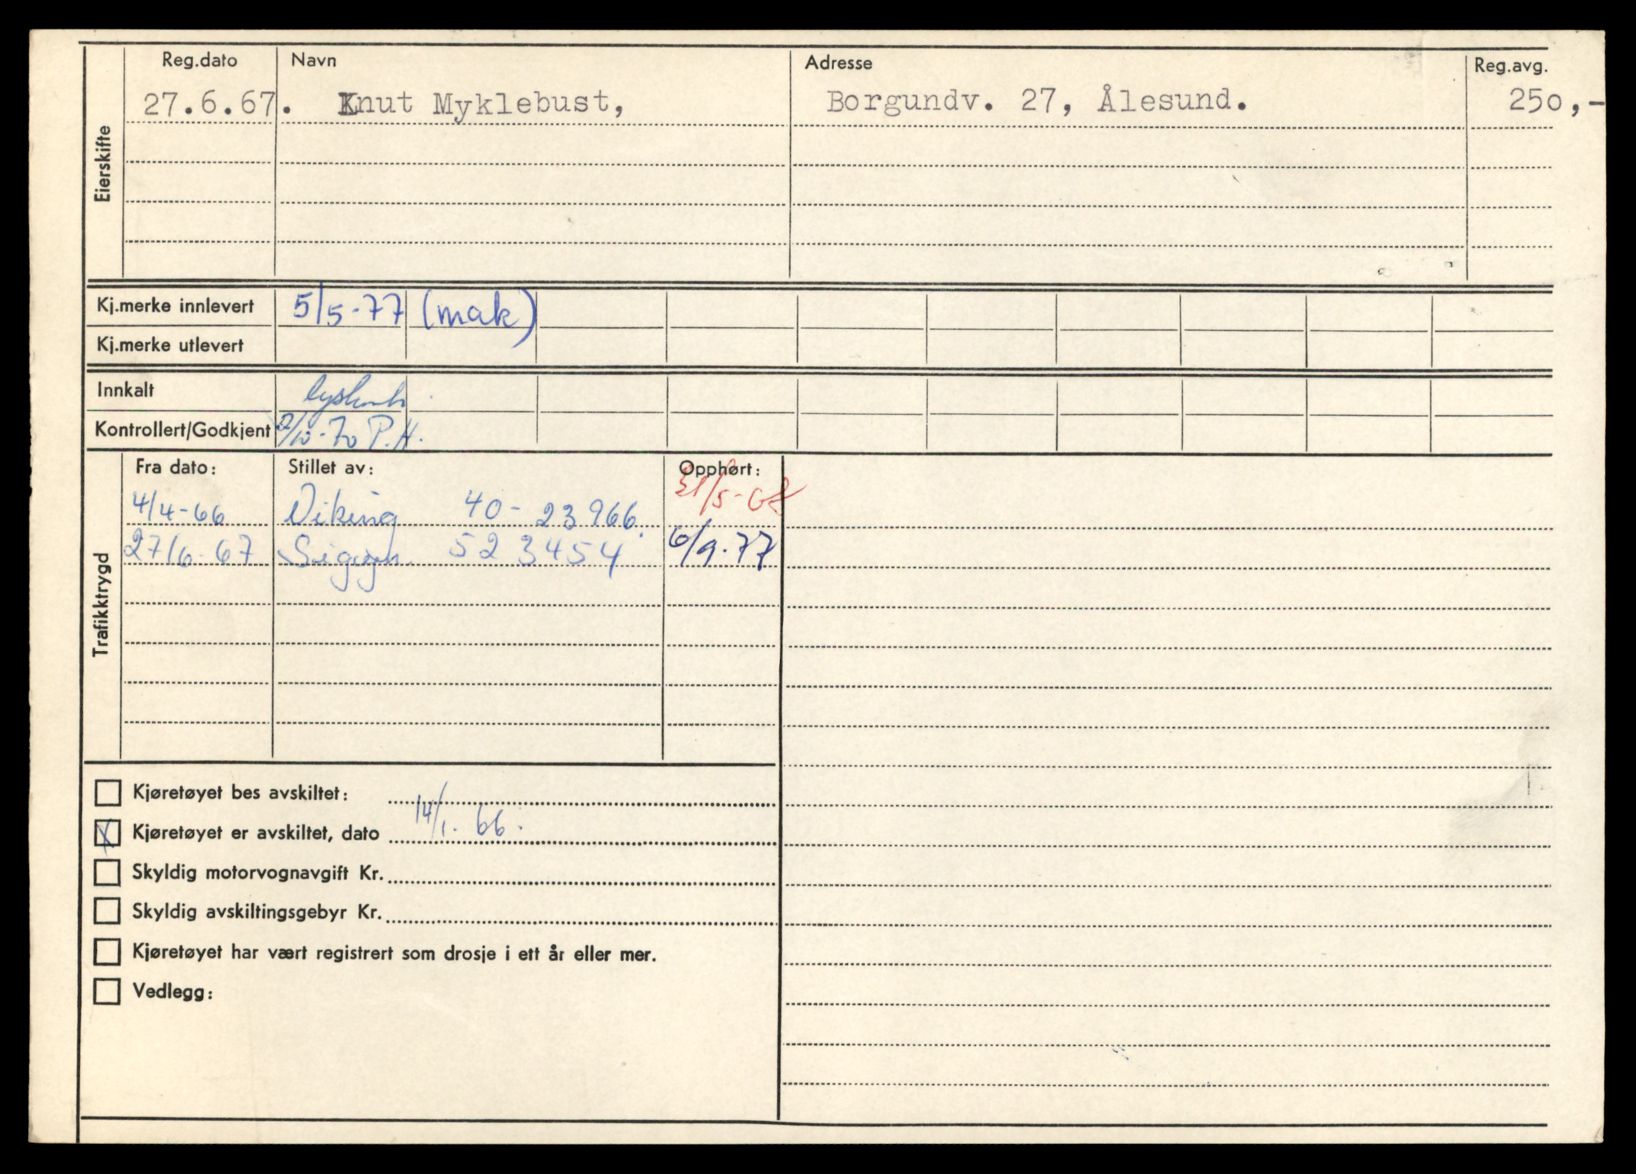 Reg.dato Navn Adresse Reg.avg.
27.6.67. Knut Myklebust, Borgundv. 27, Ålesund. 250,-
Eierskifte
Kj.merke innlevert 5/5-77 (mak)
Kj.merke utlevert
Innkalt
Kontrollert/Godkjent 2/10-70 P.H.
Fra dato: Stillet av: Opphørt:
4/4-66 Viking 40-23966 31/5-67
27/6-67 Sigyn 523454 6/9-77
Trafikktrygd
Kjøretøyet bes avskiltet:
X Kjøretøyet er avskiltet, dato 14/1-66.
Skyldig motorvognavgift Kr.
Skyldig avskiltingsgebyr Kr.
Kjøretøyet har vært registrert som drosje i ett år eller mer.
Vedlegg: